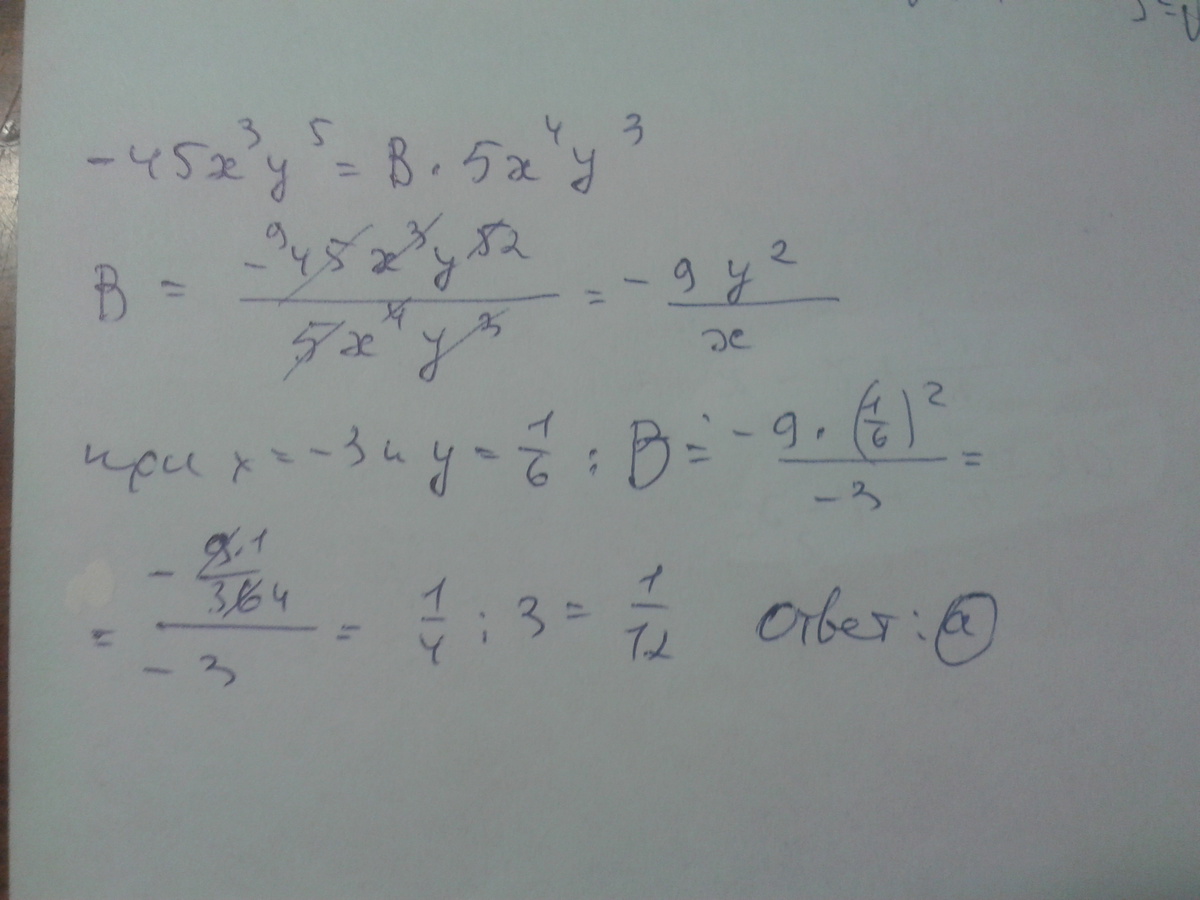 -45x³y⁵ = B · 5x⁴y³
B = -⁹45x³y⁵2 / 5x⁴y³ = - 9y² / x
при x = -3 и y = 1/6 : B = -9 · (1/6)² / -3 =
= - 9·1/36 4 / -3 = 1/4 : 3 = 1/12 Ответ: а